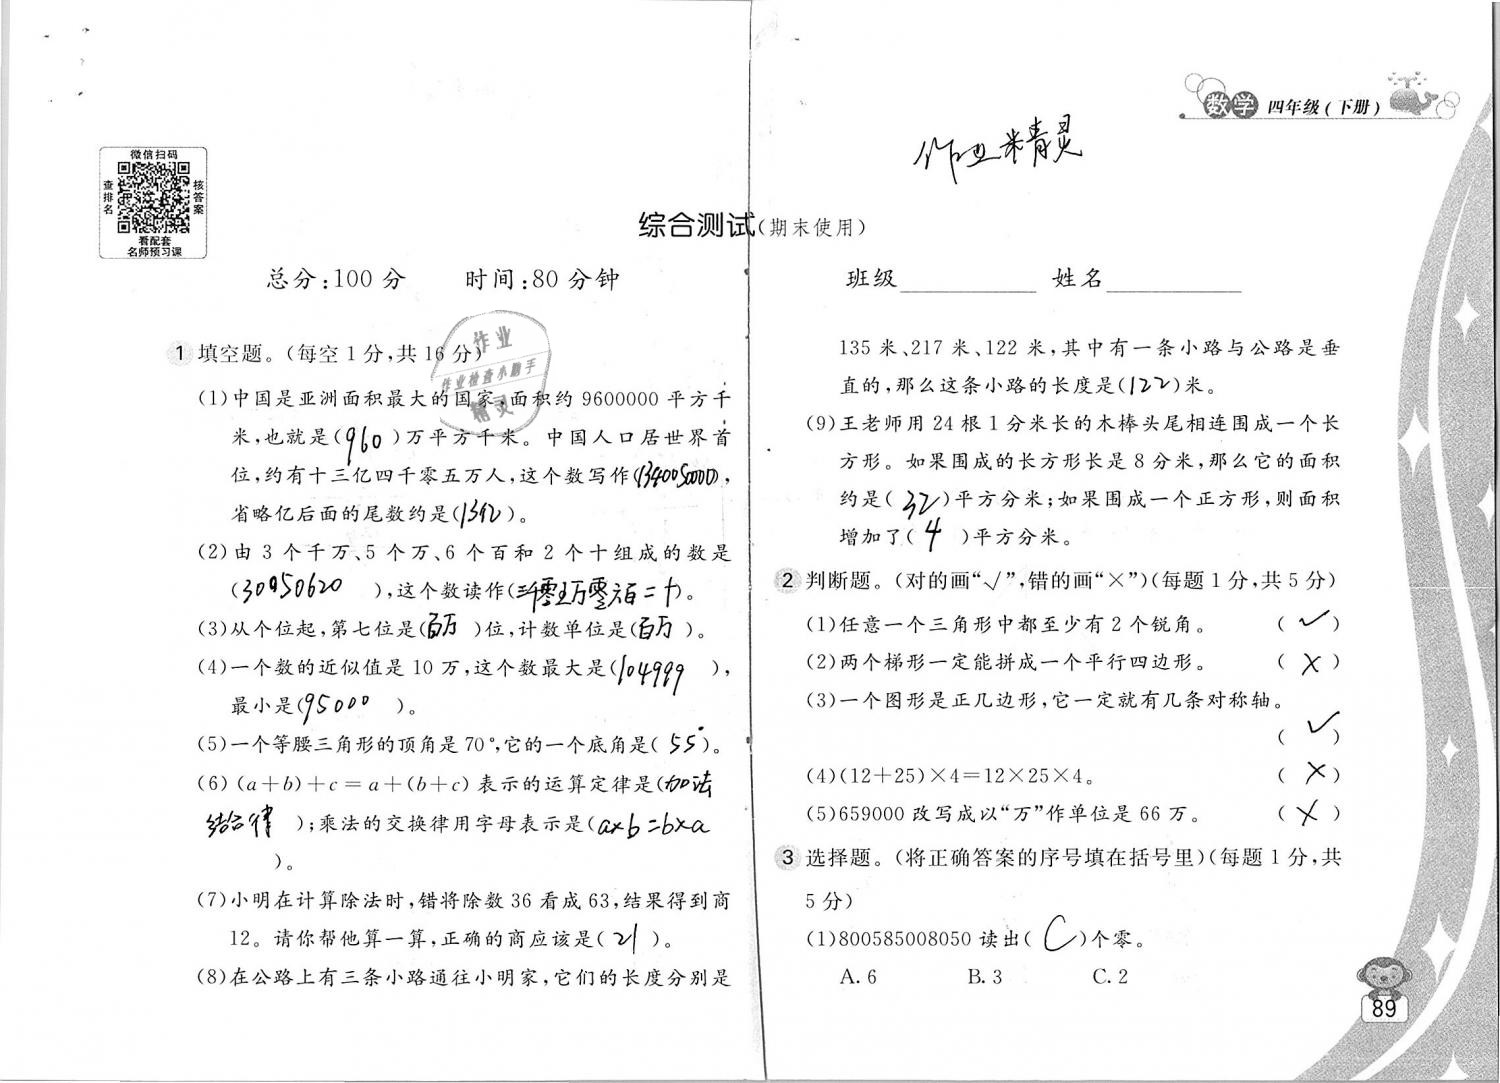 数学 四年级(下册)
作业精灵
微信扫码
查排名
核答案
看配套
名师预习课
综合测试(期末使用)
总分:100分 时间:80分钟 班级 姓名
1 填空题。(每空1分,共16分)
作业
作业检查小助手
精灵
(1)中国是亚洲面积最大的国家,面积约9600000平方千
米,也就是(960)万平方千米。中国人口居世界首
位,约有十三亿四千零五万人,这个数写作(1340050000),
省略亿后面的尾数约是(13亿)。
(2)由3个千万、5个万、6个百和2个十组成的数是
(30050620),这个数读作(三千零五万零六百二十)。
(3)从个位起,第七位是(百万)位,计数单位是(百万)。
(4)一个数的近似值是10万,这个数最大是(104999),
最小是(95000)。
(5)一个等腰三角形的顶角是70°,它的一个底角是(55°)。
(6)(a+b)+c=a+(b+c)表示的运算定律是(加法
结合律);乘法的交换律用字母表示是(a×b=b×a
)。
(7)小明在计算除法时,错将除数36看成63,结果得到商
12。请你帮他算一算,正确的商应该是(21)。
(8)在公路上有三条小路通往小明家,它们的长度分别是
135米、217米、122米,其中有一条小路与公路是垂
直的,那么这条小路的长度是(122)米。
(9)王老师用24根1分米长的木棒头尾相连围成一个长
方形。如果围成的长方形长是8分米,那么它的面积
约是(32)平方分米;如果围成一个正方形,则面积
增加了(4)平方分米。
2 判断题。(对的画“√”,错的画“×”)(每题1分,共5分)
(1)任意一个三角形中都至少有2个锐角。 (✓)
(2)两个梯形一定能拼成一个平行四边形。 (×)
(3)一个图形是正几边形,它一定就有几条对称轴。
(✓)
(4)(12+25)×4=12×25×4。 (×)
(5)659000改写成以“万”作单位是66万。 (×)
3 选择题。(将正确答案的序号填在括号里)(每题1分,共
5分)
(1)800585008050读出(C)个零。
A.6 B.3 C.2
89